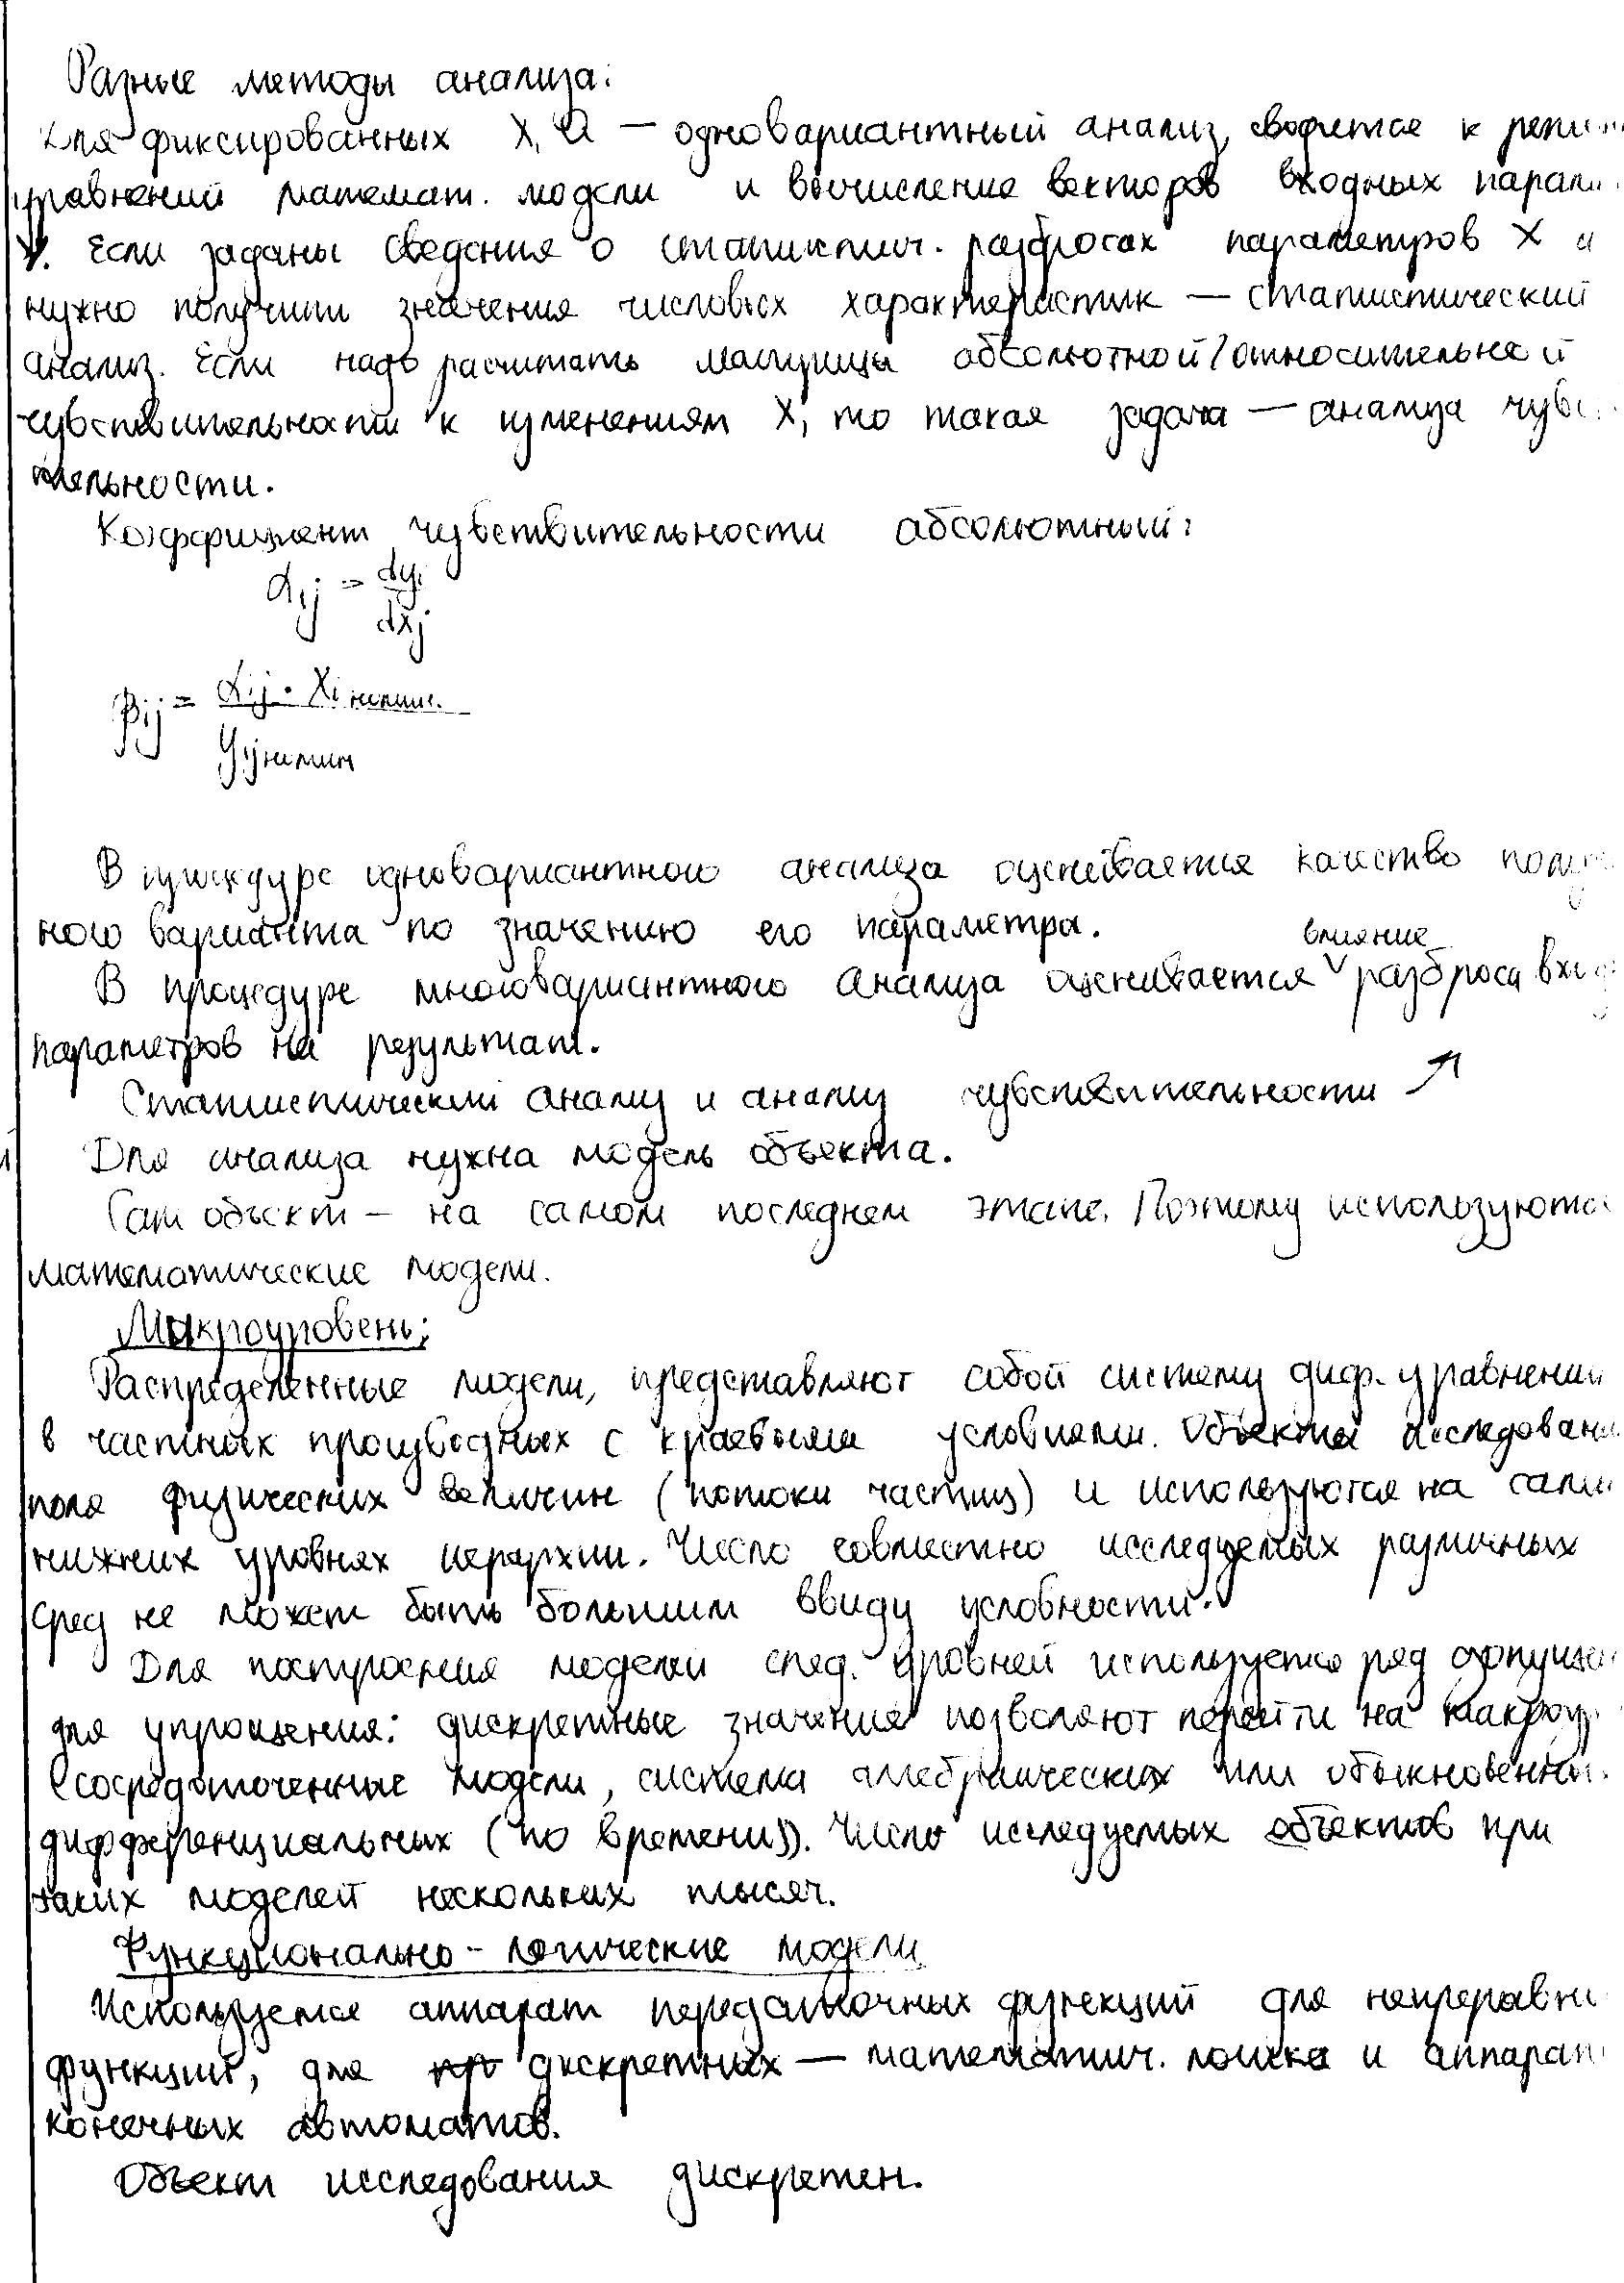 Разные методы анализа:
Для фиксированных X, Q — одновариантный анализ, сводится к реше
уравнений математ. модели и вычисление векторов входных парам
Y. Если заданы сведения о статистич. разбросах параметров X и
нужно получить значения числовых характеристик — статистический
анализ. Если надо расчитать матрицы абсолютной/относительной
чувствительности к изменениям X, то такая задача — анализа чувс
тельности.
Коэффициент чувствительности абсолютный:
αij = dyi / dxj
βij = αij · Xi номин. / Yj номин
В процедуре одновариантного анализа оценивается качество получ
ного варианта по значению его параметра.
В процедуре многовариантного анализа оценивается влияние разброса вход
параметров на результат.
Статистический анализ и анализ чувствительности ↗
Для анализа нужна модель объекта.
Сам объект — на самом последнем этапе. Поэтому используются
математические модели.
Микроуровень:
Распределенные модели, представляют собой систему диф. уравнений
в частных производных с краевыми условиями. Объекты исследован
поля физических величин (потоки частиц) и используются на самы
нижних уровнях иерархии. Число совместно исследуемых различных
сред не может быть большим ввиду условности.
Для построения модели след. уровней используется ряд допуще
для упрощения: дискретные значения позволяют перейти на макроур
(сосредоточенные модели, система алгебраических или обыкновенны
дифференциальных (по времени)). Число исследуемых объектов при
таких моделей нескольких тысяч.
Функционально-логические модели
Используется аппарат передаточных функций для непрерывн
функций, для дискретных — математич. логика и аппарат
конечных автоматов.
Объект исследования дискретен.